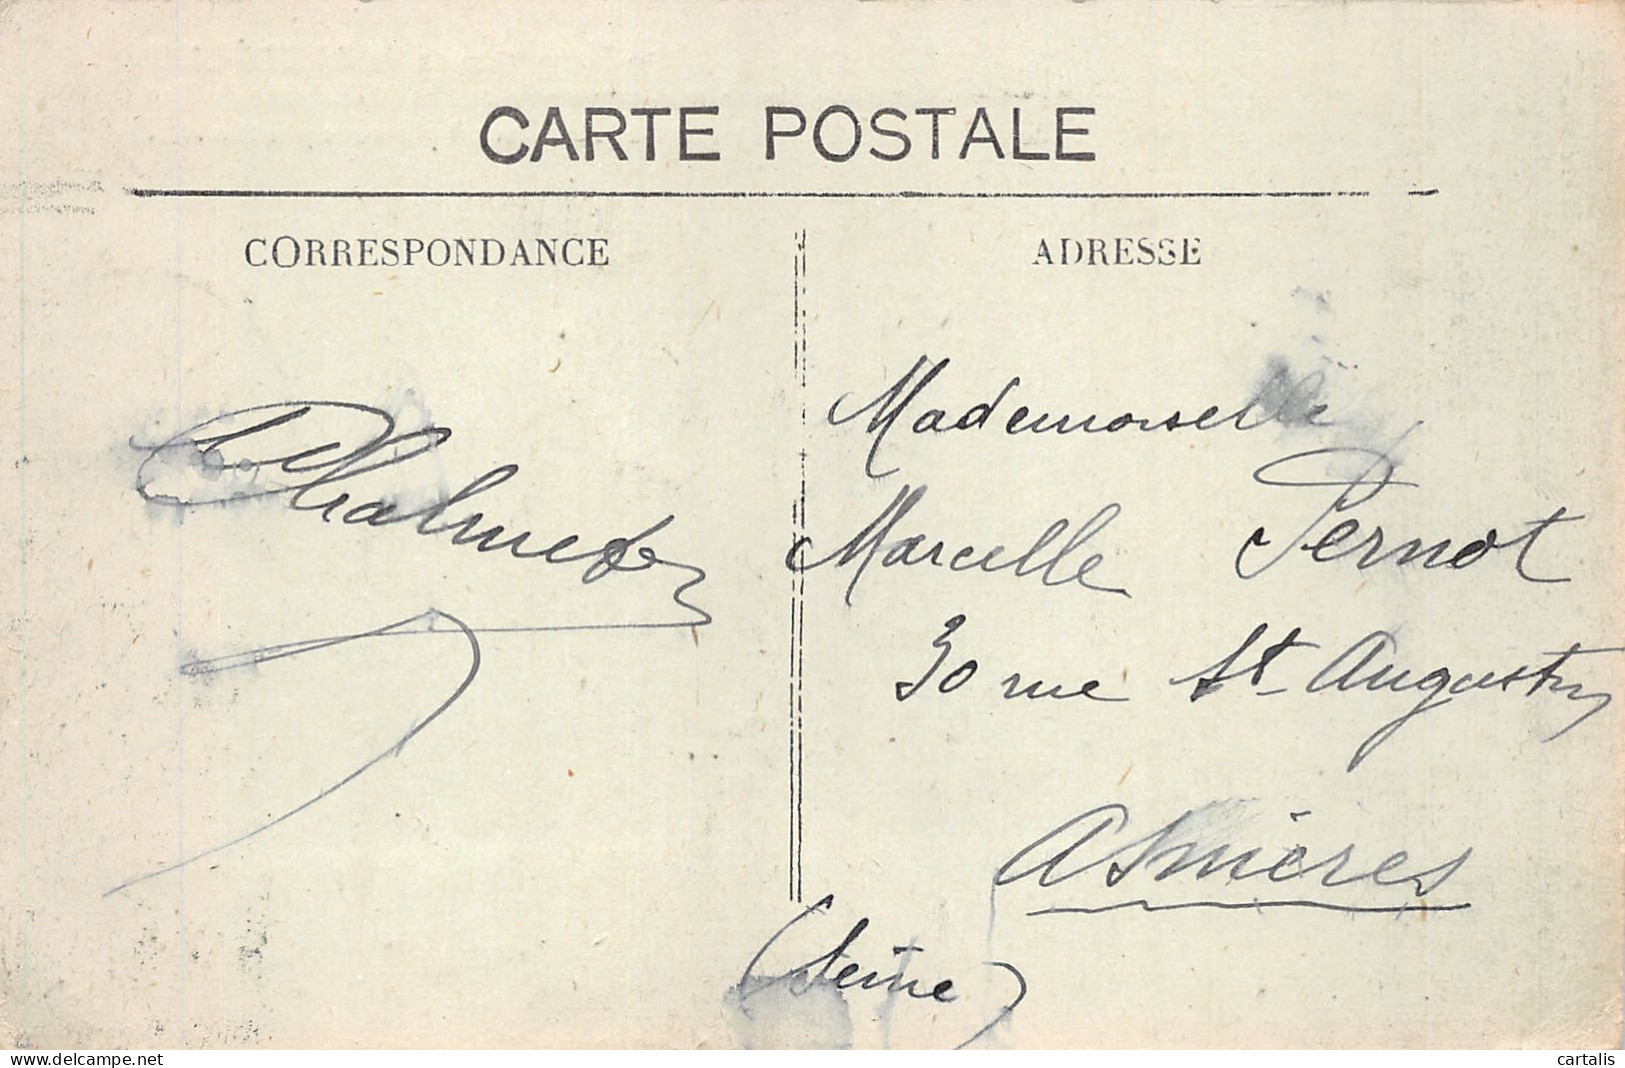 CARTE POSTALE
CORRESPONDANCE
ADRESSE
Mademoiselle
Marcelle Pernot
30 rue St-Augustin
Asnières
(Seine)
delcampe.net
cartalis